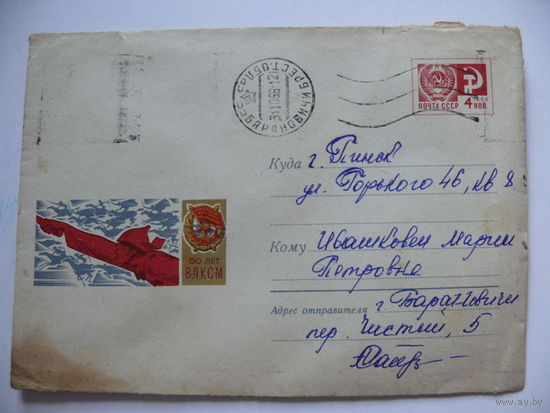 БАРАНОВИЧИ БРЕСТ. ОБЛ.
31 10 68 12
ПОЧТА СССР
4 КОП.
1966
Куда г. Пинск
ул. Горького 46, кв 8
50 ЛЕТ
ВЛКСМ
Кому Ивашкевич Марии
Петровне
Адрес отправителя г Барановичи
пер. Чистый, 5
www.ay.by